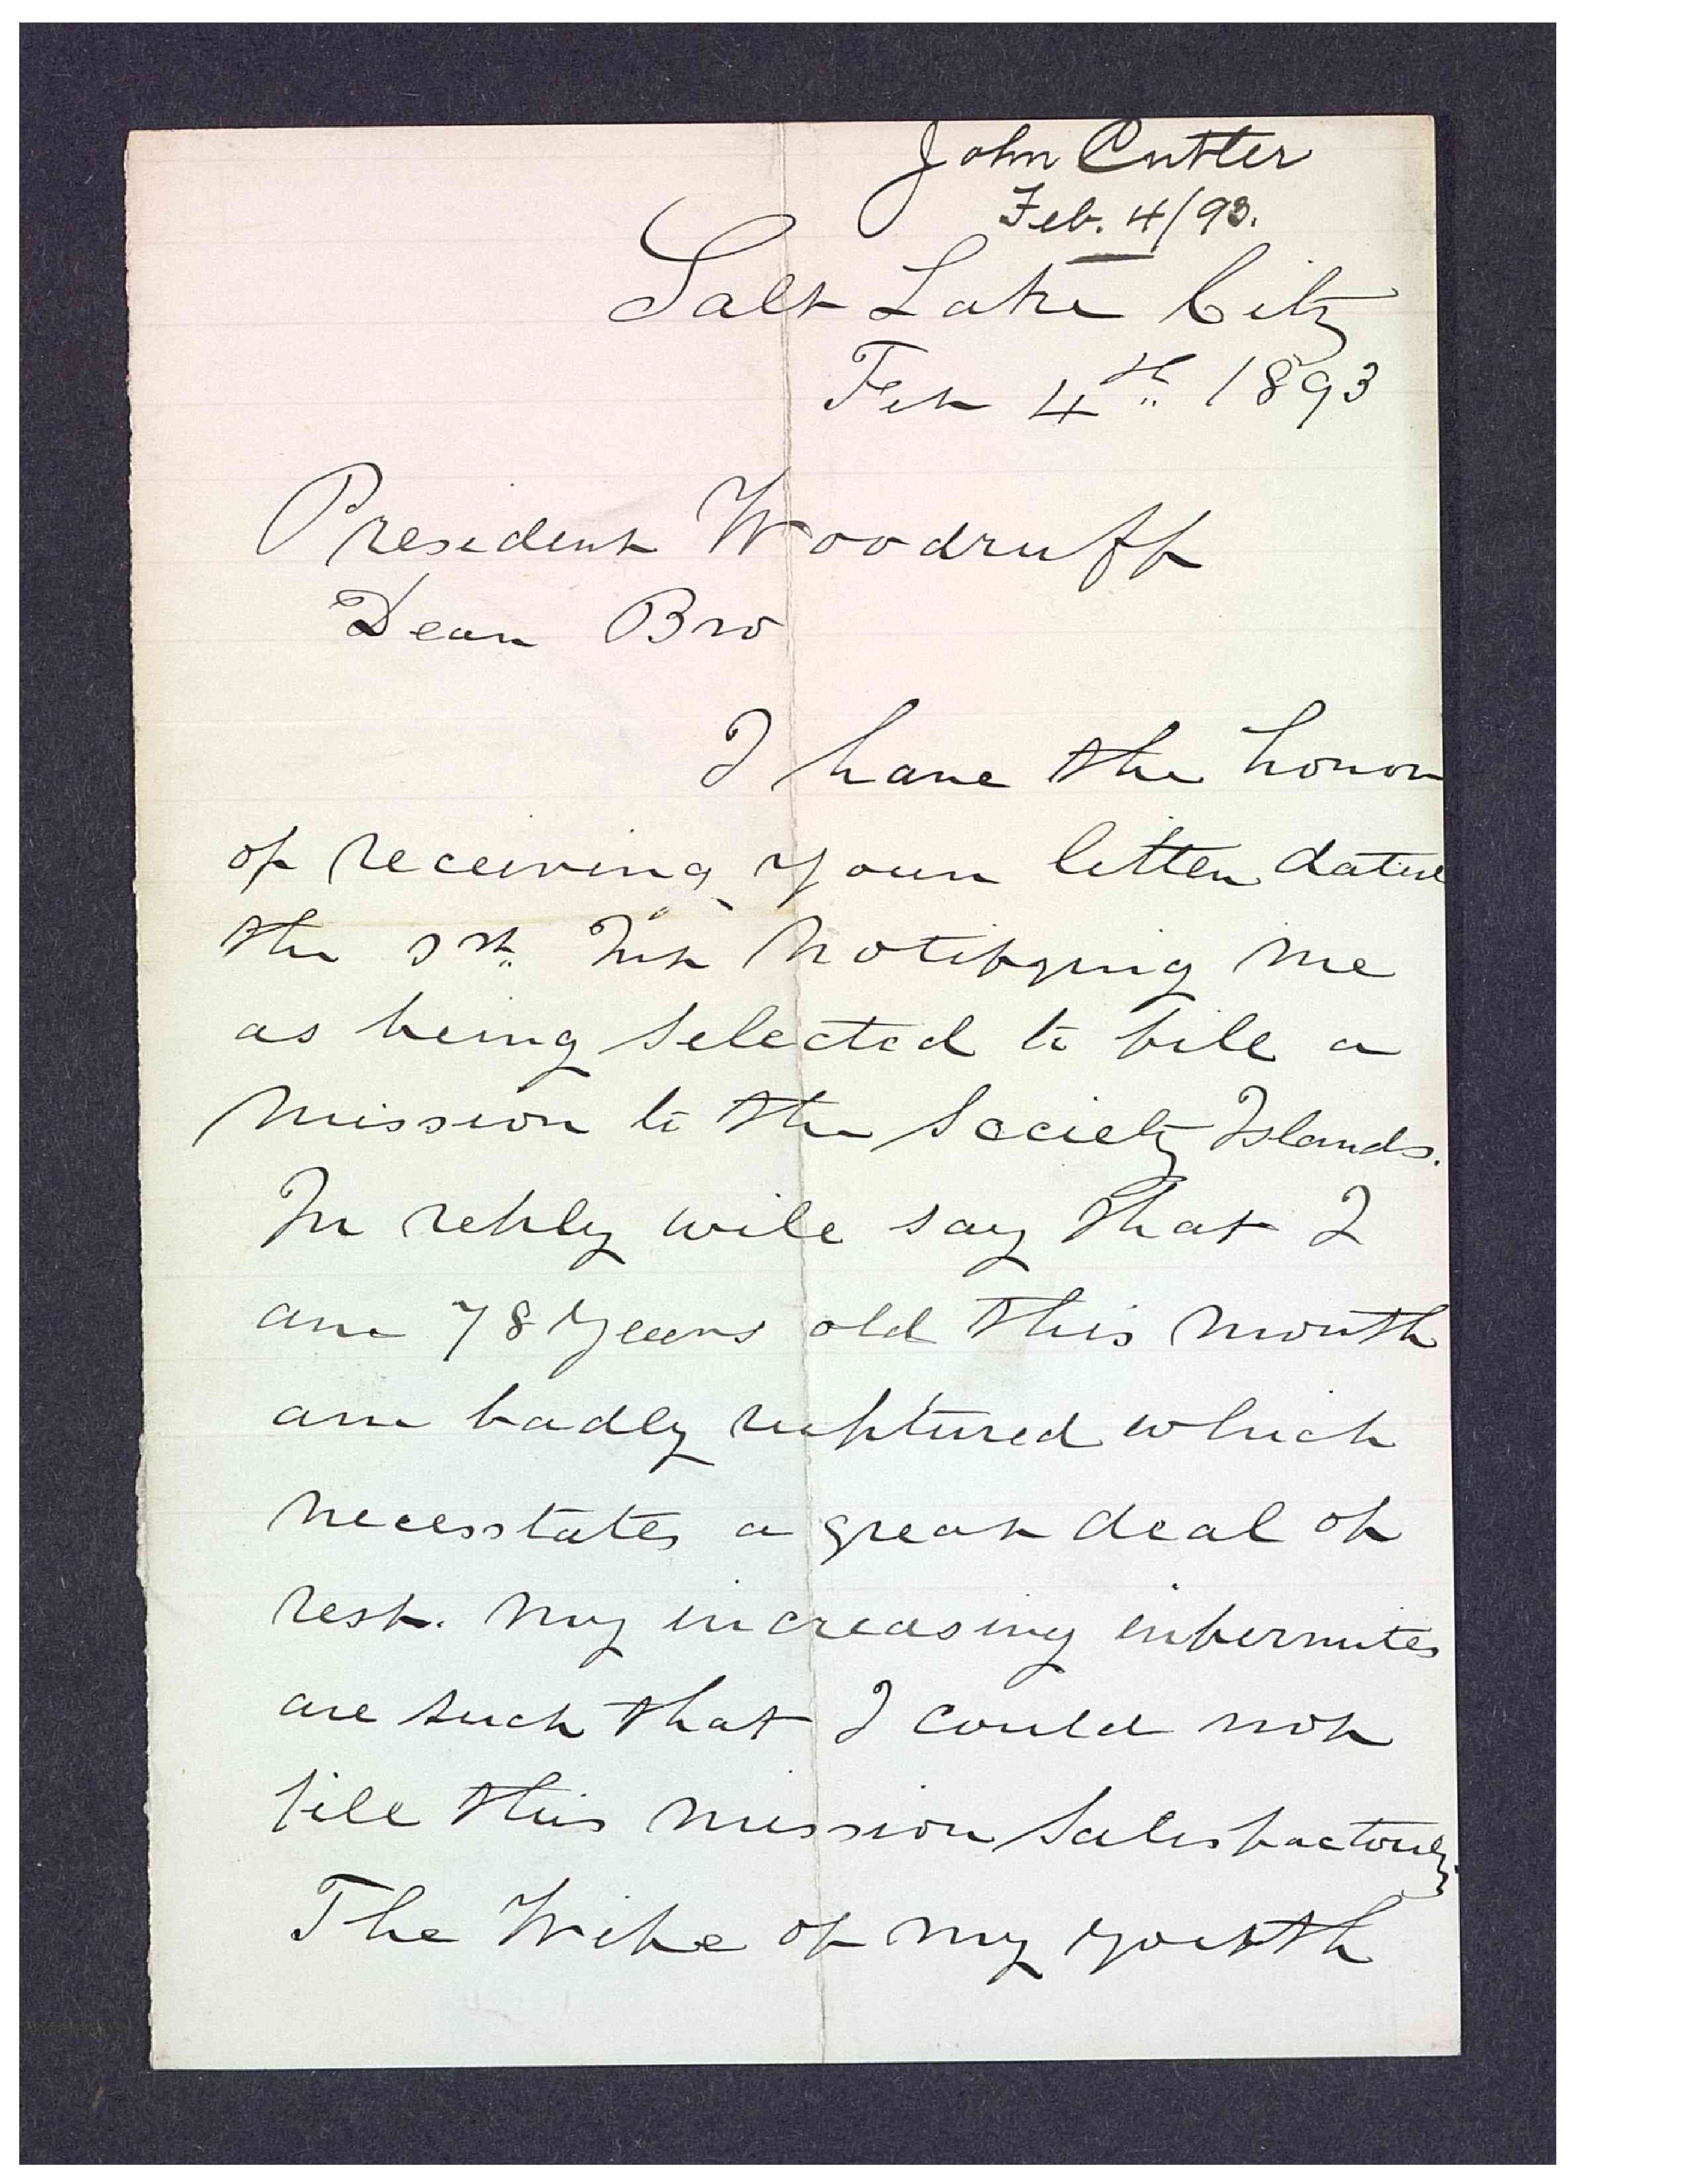 John Cutler
Feb. 4/93.
Salt Lake City
Feb 4th 1893
President Woodruff
Dear Bro
I have the honor
of receiving your letter dated
the 1st Inst notifying me
as being selected to fill a
mission to the Society Islands.
In reply will say that I
am 78 years old this month
am badly ruptured which
necesstates a great deal of
rest. My increasing infermites
are such that I could not
fill this mission Satisfactorily
The Wife of my youth